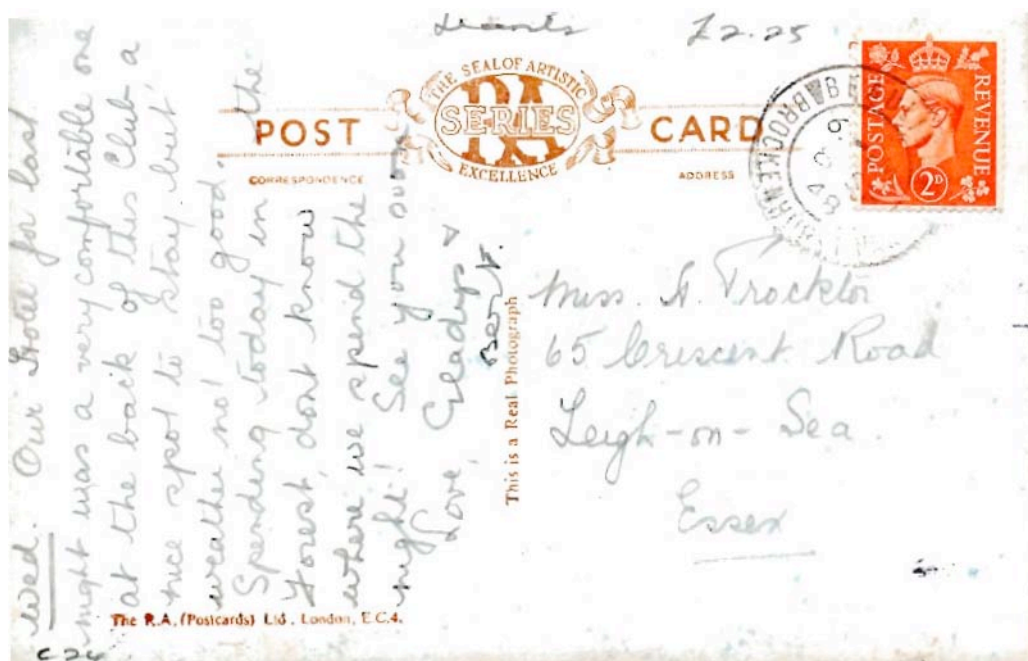 Hants £2.25
THE SEAL OF ARTISTIC
RA
SERIES
EXCELLENCE
POST CARD
CORRESPONDENCE ADDRESS
POSTAGE REVENUE
2D
BROCKENHURST
Wed. Our Hotel for last
night was a very comfortable one
at the back of this Club a
nice spot to stay, but
weather not too good.
Spending today in the
Forest, dont know
where we spend the
night! See you soon
Love, Gladys &
Bert.
This is a Real Photograph
Miss. A. Trockter
65 Crescent Road
Leigh-on-Sea.
Essex
The R.A. (Postcards) Ltd., London, E.C.4.
C24